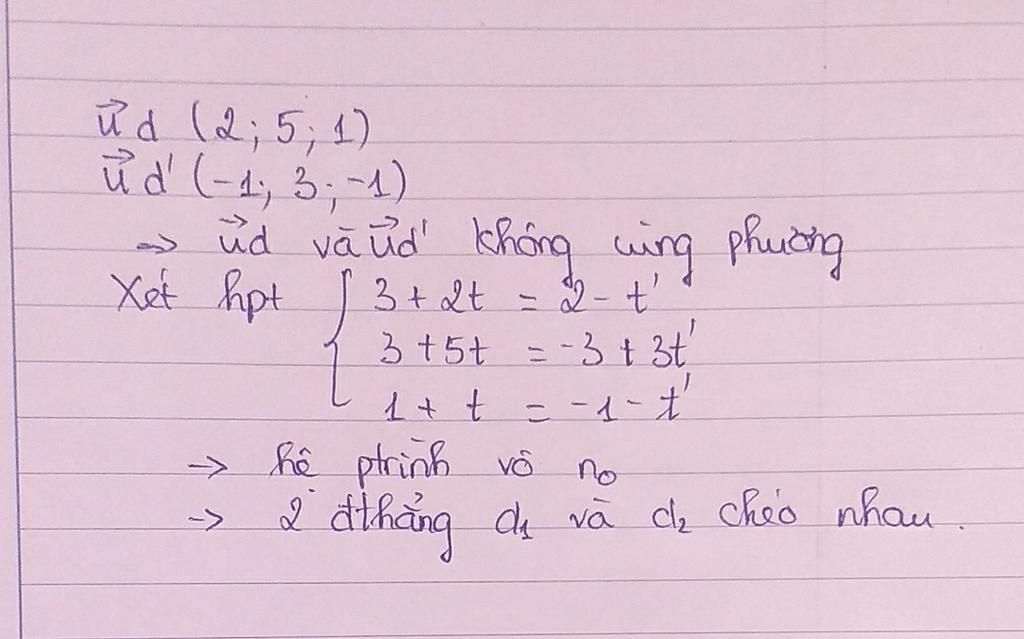 u⃗d (2; 5; 1)
u⃗d' (-1; 3; -1)
=> u⃗d và u⃗d' không cùng phương
Xét hpt { 3 + 2t = 2 - t'
3 + 5t = -3 + 3t'
1 + t = -1 - t'
-> hệ ptrình vô no
-> 2 đthẳng d₁ và d₂ chéo nhau.